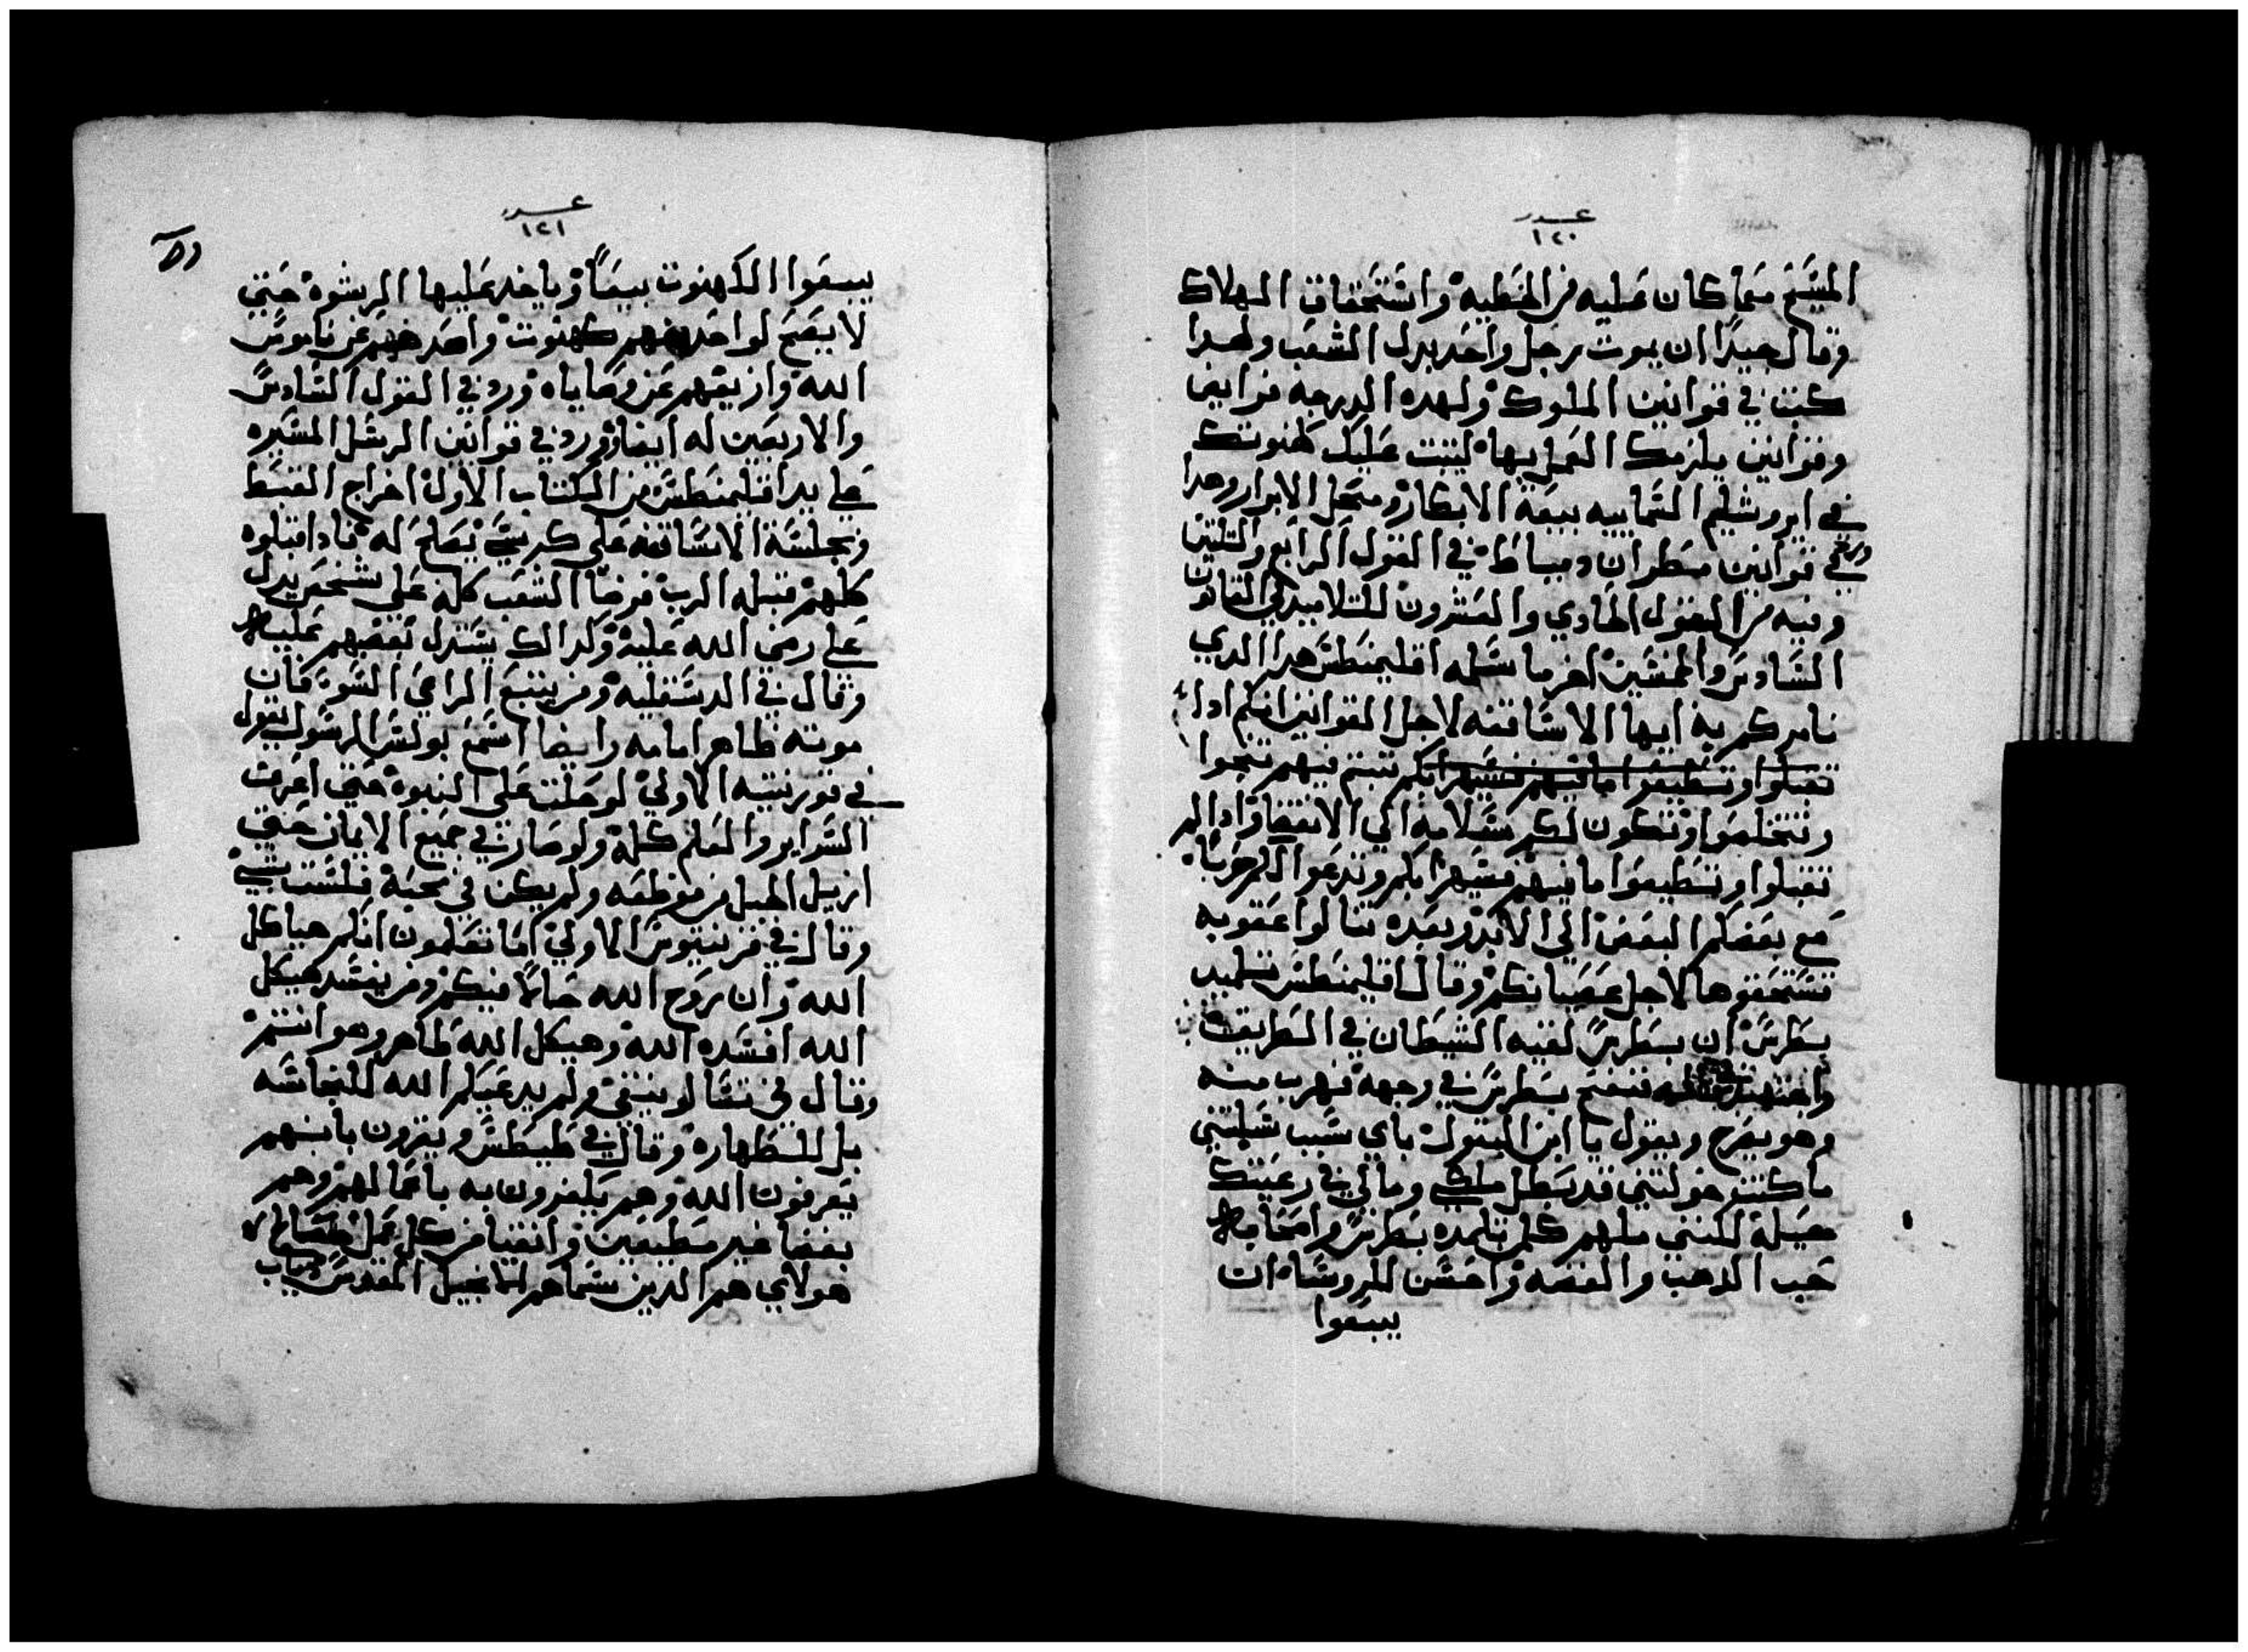 عدد
١٢٠
المسيح مما كان عليه من الخطيه واستحقاق الهلاك
وقال جيدا ان يموت رجل واحد بدل الشعب ولهدا
كتبت في قوانين الملوك ولهده الدرجه فرايض
وقوانين يلزمك العمل بها ليتبت عليك كهنوتك
في ايروشليم السماييه بيعة الابكار ومحل الابرار وهدا
في قوانين مطران دمياط في القول الرابع والتلتين
وفيه من القول الحادي والعشرون للتلاميد في القانون
السادس والخمسين اخر ما سلمه اقليمنطس هدا الدي
نامركم به ايها الاساقفه لاجل القوانين انكم ادا
تقبلوا وتطيعوا ما فيهم فسيرايكم تتبتم فيهم تنجوا
وتتخلصوا وتكون لكم سلامه الي الانقضا وادا لم
تقبلوا وتطيعوا ما فيهم فسيرايكم وتدعوا للحرب
مع بعضكم البعض الي الابد وبعده تنالوا عقوبه
تستحقوها لاجل عصيانكم وقال اقليمنطس تلميد
بطرس ان بطرس لقيه الشيطان في الطريق
فنفخ بطرس في وجهه فهرب منه
وهو يصرخ ويقول يا ابن البتول باي سبب سلبتني
ما كنت خولتني قد بطل ملكي ومالي في رعيتك
حيله لكنني ملهم كلمن تلمده بطرس واصحابه
حب الدهب والفضه واحسن للروساء ان
يبيعوا
عدد
١٢١
يبيعوا الكهنوت بيعا وياخد عليها الرشوه حتي
لا يصح لواحد منهم كهنوت واصدهم عن ناموس
الله وازيغهم عن وصاياه ورد في القول السادس
والاربعين له ايضا وورد في قوانين الرسل المسيره
علي يد اقليمنطس من الكتاب الاول اخراج القسط
ويجلسه الاساقفه علي كرسي يصلح له فادا قبلوه
كلهم قبله الرب فرضا الشعب كله علي شخص يدل
علي رضي الله عليه وكدالك يستدل بغضهم عليه
وقال في الدسقليه ومن يتبع الراعي السوء كان
موته ظاهر امامه وايضا اسمع بولس الرسول يقول
في قورنتيه الاولي لو حلت علي النبوه حتي اعرف
السراير والعلم كله ولو صار في جميع الايمان حتي
ازيل الجبل من موظعه ولم يكن في محبة فلست بشي
وقال في قرنتيوس الاولي اما تعلمون انكم هياكل
الله وان روح الله حالا فيكم ومن يفسد هيكل
الله افسده الله وهيكل الله طاهر وهو انتم
وقال في تسالونيقي ولم يدعيكم الله للنجاسه
بل للطهاره وقال في طيطس ويقرون بانهم
يعرفون الله وهم يكفرون به باعمالهم وهم
بغضا غير مطيعين وانقيا من كل عمل صالح
هولاي هم الدين سماهم الانجيل المقدس دياب